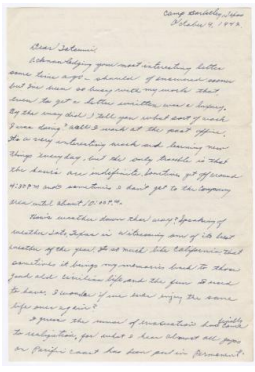 Camp Barkeley, Texas
October 9, 1943
Dear Tatsumi:
Acknowledging your most interesting letter
some time ago - should of answered sooner
but I've been so busy with my work that
even to get a letter written was a luxury.
By the way did I tell you what sort of work
I was doing? Well I work at the post office.
It's a very interesting work and learning new
things everyday, but the only trouble is that
the hours are indefinite. Sometimes get off around
4:30 P.M. and sometimes I don't get to the Company
area until about 10:00 P.M.
How's weather down that way? Speaking of
weather here, Texas is witnessing one of its best
weather of the year. It's so much like California that
sometimes it brings my memories back to those
good old civilian life and the fun it used
to have. I wonder if we ever enjoy the same
life over again?
I guess the rumor of evacuation has
to realization, for what I hear almost all
on Pacific coast has been put in permanent